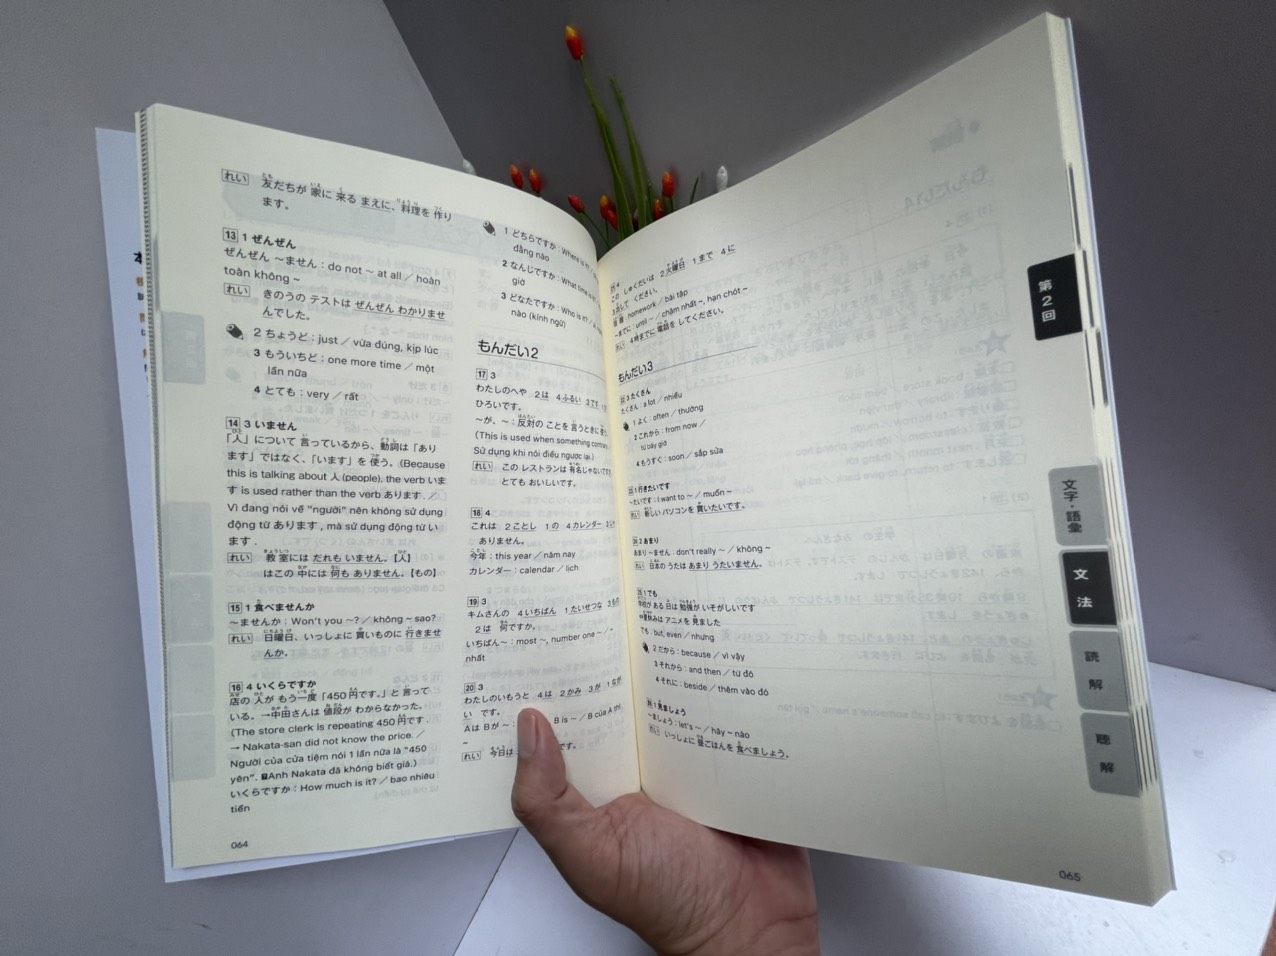 れい 友だちが 家に 来る まえに、料理を 作り
ます。
13 1 ぜんぜん
ぜんぜん ～ません : do not ～ at all／hoàn
toàn không ～
れい きのうの テストは ぜんぜん わかりませ
んでした。
2 ちょうど : just／vừa đúng, kịp lúc
3 もういちど : one more time／một
lần nữa
4 とても : very／rất
14 3 いません
「人」について 言っているから、動詞は「あり
ます」ではなく、「います」を 使う。(Because
this is talking about 人 (people), the verb いま
す is used rather than the verb あります .／
Vì đang nói về "người" nên không sử dụng
động từ あります , mà sử dụng động từ いま
す .
れい 教室には だれも いません。【人】
はこの 中には 何も ありません。【もの】
15 1 食べませんか
～ませんか : Won't you ～?／không ～ sao?
れい 日曜日、いっしょに 買いものに 行きませ
んか。
16 4 いくらですか
店の 人が もう一度「450円です。」と 言って
いる。→中田さんは 値段が わからなかった。
(The store clerk is repeating 450円です .
→ Nakata-san did not know the price.／
Người của cửa tiệm nói 1 lần nữa là "450
yên". Anh Nakata đã không biết giá.)
いくらですか : How much is it?／bao nhiêu
tiền
064
1 どちらですか : Where is it?
đằng nào
2 なんじですか : What time is
giờ
3 どなたですか : Who is it?
nào (kính ngữ)
もんだい2
17 3
わたしのへや 2は 4ふるい 3です
ひろいです。
～が、～ : 反対の ことを 言うときに
(This is used when something
Sử dụng khi nói điều ngược lại.)
れい この レストランは 有名じゃないです
とても おいしいです。
18 4
これは 2ことし 1の 4カレンダー
ありません。
今年 : this year／năm nay
カレンダー : calendar／lịch
19 3
キムさんの 4いちばん 1たいせつな
2は 何ですか。
いちばん～ : most ～, number one ～
nhất
20 3
わたしのいもうと 4は 2かみ 3が
い です。
AはBが～ : B is ～／B của A thì
～
れい 今日は です。
4
この しゅくだいは 2火曜日 1まで 4に
3出して ください。
homework／bài tập
～までに : until ～／chậm nhất ～, hạn chót ～
れい 4時までに 電話を してください。
もんだい3
3 たくさん
たくさん : a lot／nhiều
1 よく : often／thường
3 これから : from now／
từ bây giờ
4 もうすぐ : soon／sắp sửa
1 行きたいです
～たいです : I want to ～／muốn ～
れい 新しい パソコンを 買いたいです。
2 あまり
あまり ～ません : don't really ～／không ～
れい 日本の うたは あまり うたいません。
1 でも
学校が ある 日は 勉強が いそがしいです
休みは アニメを 見ました
でも : but, even／nhưng
2 だから : because／vì vậy
3 それから : and then／từ đó
4 それに : beside／thêm vào đó
1 見ましょう
～ましょう : let's ～／hãy ～ nào
れい いっしょに 昼ごはんを 食べましょう。
065
第2回
文字・語彙
文法
読解
聴解